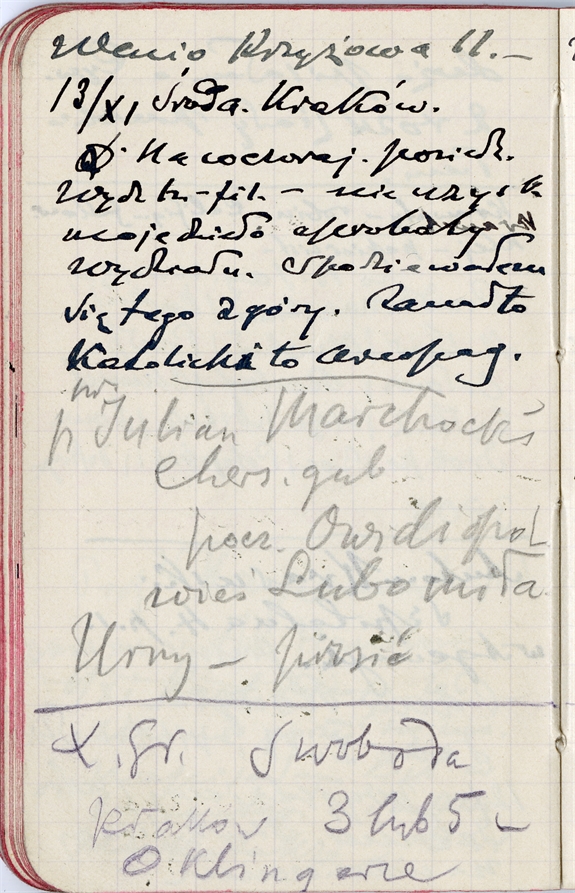 Wenio Krzyżowa 11.–
13/XI Środa. Kraków.
Na wczoraj. posiedz.
wydz. hi-fil. – nie uzysk
moje dzieło aprobaty
wydziału. Spodziewałem
się tego z góry. Zanadto
Katolicki to areopag.
p Julian Marchocki
Chers. gub
pocz. Owidiopol
wieś Lubomiła
Urny – pirsić
X. Gr. Swoboda
Krakow 3 lub 5 –
O Klingerze